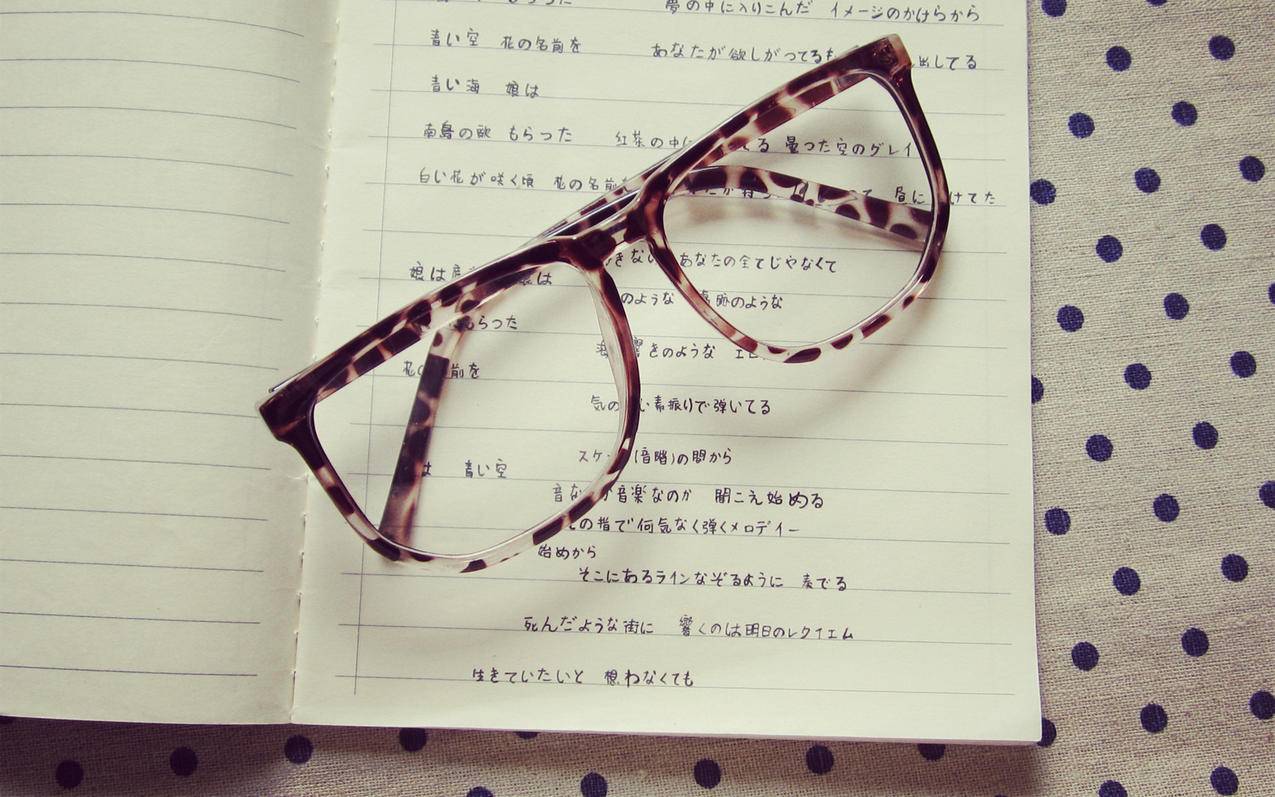 もらった 夢の中に入りこんだ イメージのかけらから
青い空 花の名前を あなたが欲しがってるも 出してる
青い海 娘は
南島の歌 もらった 紅茶の中に てる 曇った空のグレイ
白い花が咲く頃 花の名前 昼に けてた
娘は きない あなたの全てじゃなくて
のような 跡のような
もらった
響きのような
花の 前を
気の い素振りで弾いてる
は 青い空 スケ (音階)の間から
音な 音楽なのか 聞こえ始める
の指で何気なく弾くメロディー
始めから
そこにあるラインなぞるように 奏でる
死んだような街に 響くのは明日のレクイエム
生きていたいと 想わなくても